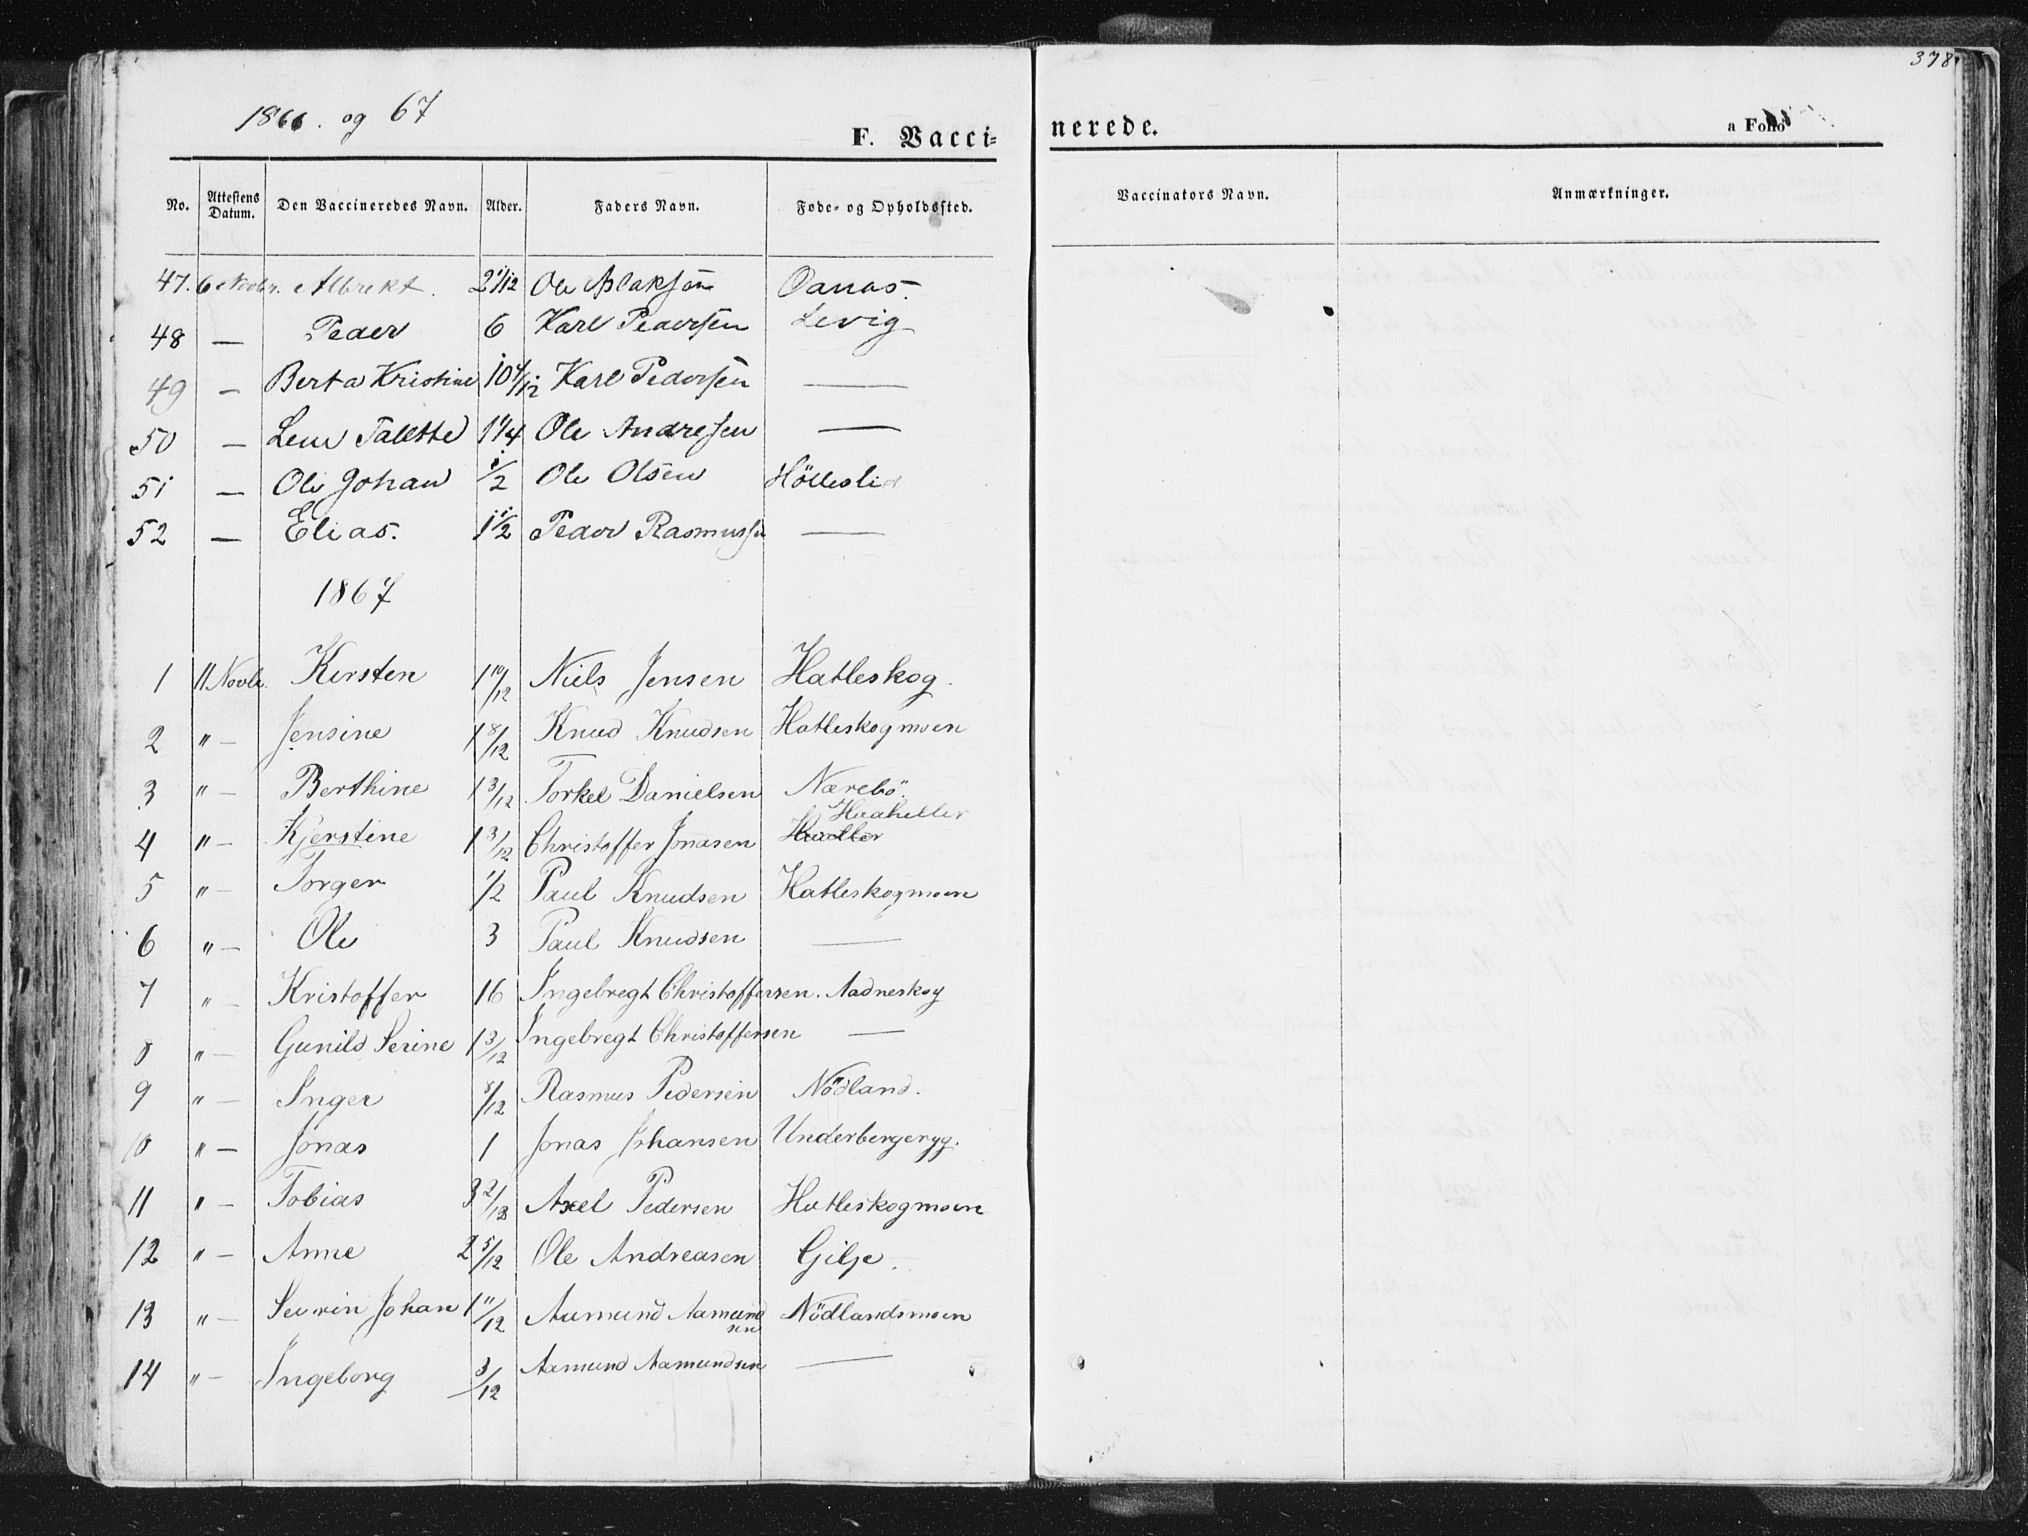 378
1866. og 67
F. Vacci-
nerede.
a Folio
No. Attestens Datum. Den Vaccineredes Navn. Alder. Faders Navn. Føde- og Opholdssted.
Vaccinators Navn. Anmærkninger.
47. 6 Novbr. Albrekt. 2 1/12 Ole Aslaksøn Oanas.
48 — Peder 6 Karl Pedersen Levig
49 — Berta Kristine 10 4/12 Karl Pedersen —
50 — Lene Talette 1 1/4 Ole Andresen —
51 — Ole Johan 1/2 Ole Olsen Hölleslid
52 — Elias. 1 1/2 Peder Rasmussen —
1867
1 11 Novbr. Kersten 1 10/12 Niels Jensen Hatleskog.
2 " — Jensine 1 8/12 Knud Knudsen Hatleskogmoen
3 " — Berthine 1 3/12 Torkel Danielsen Nærebö.
4 " — Kjerstine 1 3/12 Christoffer Jonasen Huaheller
5 " — Torger 1/2 Paul Knudsen Hatleskogmoen
6 " — Ole 3 Paul Knudsen —
7 " — Kristoffer 16 Ingebregt Christoffersen. Aadneskog
8 " — Gunild Serine 1 3/12 Ingebregt Christoffersen —
9 " — Inger 8/12 Rasmus Pedersen Nödland.
10 " — Jonas 1 Jonas Johansen Underbergeryg.
11 " — Tobias 3 2/12 Axel Pedersen Hatleskogmoen
12 " — Anne 2 5/12 Ole Andreasen Gilje.
13 " — Sevrin Johan 1 11/12 Aamund Aamundsen Nödlandsmoen
14 " — Ingeborg 3/12 Aamund Aamundsen —